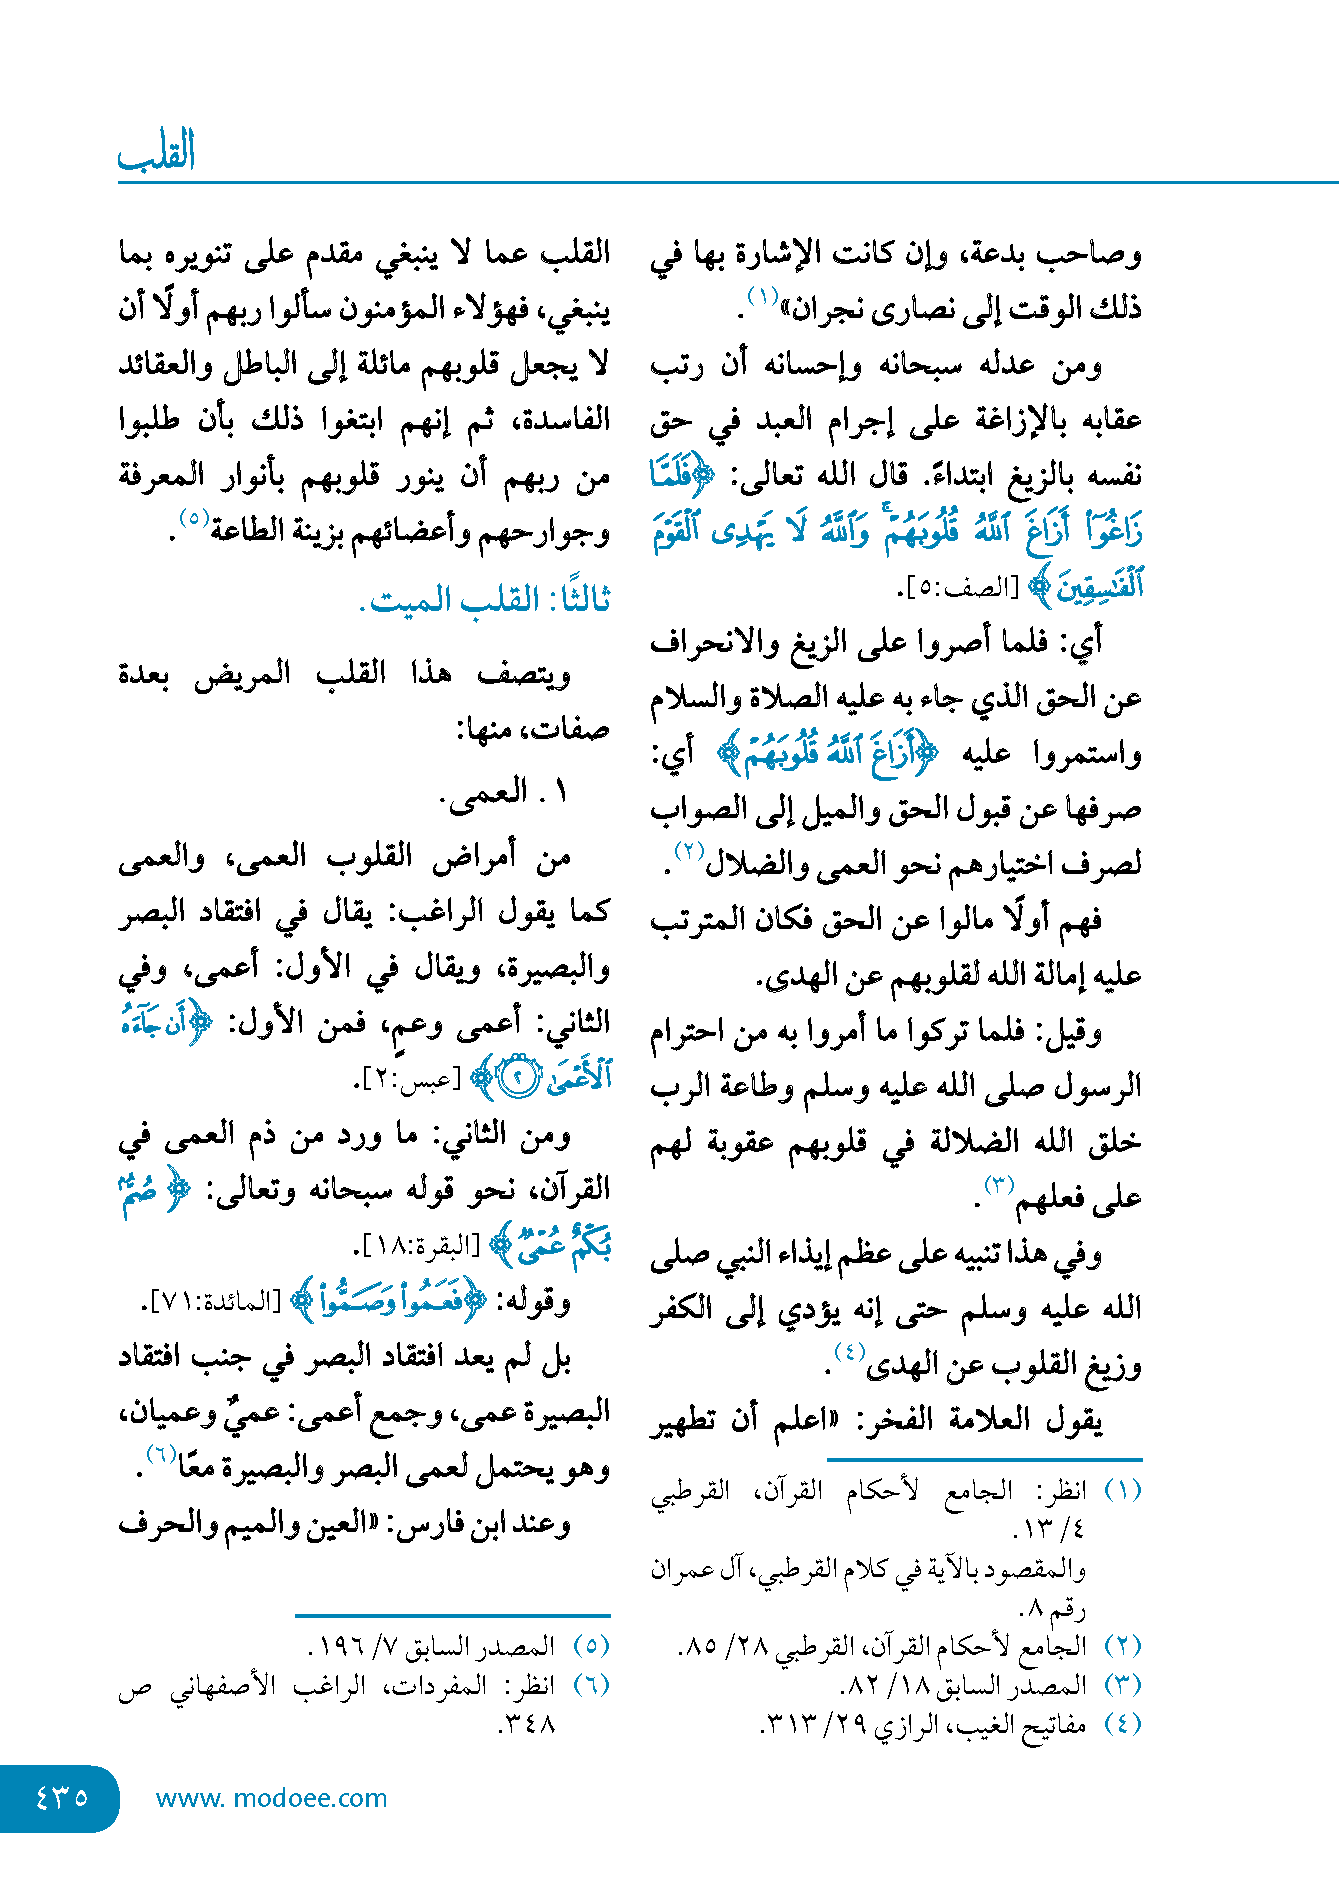 القلب
وصاحب بدعة، وإن كانت الإشارة بها في
ذلك الوقت إلى نصارى نجران»(١).
ومن عدله سبحانه وإحسانه أن رتب
عقابه بالإزاغة على إجرام العبد في حق
نفسه بالزيغ ابتداءً. قال الله تعالى: ﴿فَلَمَّا
زَاغُوٓا۟ أَزَاغَ ٱللَّهُ قُلُوبَهُمْ ۚ وَٱللَّهُ لَا يَهْدِى ٱلْقَوْمَ
ٱلْفَـٰسِقِينَ﴾ [الصف:٥].
أي: فلما أصروا على الزيغ والانحراف
عن الحق الذي جاء به عليه الصلاة والسلام
واستمروا عليه ﴿أَزَاغَ ٱللَّهُ قُلُوبَهُمْ﴾ أي:
صرفها عن قبول الحق والميل إلى الصواب
لصرف اختيارهم نحو العمى والضلال(٢).
فهم أولًا مالوا عن الحق فكان المترتب
عليه إمالة الله لقلوبهم عن الهدى.
وقيل: فلما تركوا ما أمروا به من احترام
الرسول صلى الله عليه وسلم وطاعة الرب
خلق الله الضلالة في قلوبهم عقوبة لهم
على فعلهم(٣).
وفي هذا تنبيه على عظم إيذاء النبي صلى
الله عليه وسلم حتى إنه يؤدي إلى الكفر
وزيغ القلوب عن الهدى(٤).
يقول العلامة الفخر: «اعلم أن تطهير
(١) انظر: الجامع لأحكام القرآن، القرطبي
٤/ ١٣.
والمقصود بالآية في كلام القرطبي، آل عمران
رقم ٨.
(٢) الجامع لأحكام القرآن، القرطبي ٢٨/ ٨٥.
(٣) المصدر السابق ١٨/ ٨٢.
(٤) مفاتيح الغيب، الرازي ٢٩/ ٣١٣.
القلب عما لا ينبغي مقدم على تنويره بما
ينبغي، فهؤلاء المؤمنون سألوا ربهم أولًا أن
لا يجعل قلوبهم مائلة إلى الباطل والعقائد
الفاسدة، ثم إنهم ابتغوا ذلك بأن طلبوا
من ربهم أن ينور قلوبهم بأنوار المعرفة
وجوارحهم وأعضائهم بزينة الطاعة(٥).
ثالثًا: القلب الميت.
ويتصف هذا القلب المريض بعدة
صفات، منها:
١ . العمى.
من أمراض القلوب العمى، والعمى
كما يقول الراغب: يقال في افتقاد البصر
والبصيرة، ويقال في الأول: أعمى، وفي
الثاني: أعمى وعمٍ، فمن الأول: ﴿أَن جَآءَهُ
ٱلْأَعْمَىٰ ٢﴾ [عبس:٢].
ومن الثاني: ما ورد من ذم العمى في
القرآن، نحو قوله سبحانه وتعالى: ﴿صُمٌّۢ
بُكْمٌ عُمْىٌ﴾ [البقرة:١٨].
وقوله: ﴿فَعَمُوا۟ وَصَمُّوا۟﴾ [المائدة:٧١].
بل لم يعد افتقاد البصر في جنب افتقاد
البصيرة عمى، وجمع أعمى: عميٌ وعميان،
وهو يحتمل لعمى البصر والبصيرة معًا(٦).
وعند ابن فارس: «العين والميم والحرف
(٥) المصدر السابق ٧/ ١٩٦.
(٦) انظر: المفردات، الراغب الأصفهاني ص
٣٤٨.
www. modoee.com
٤٣٥